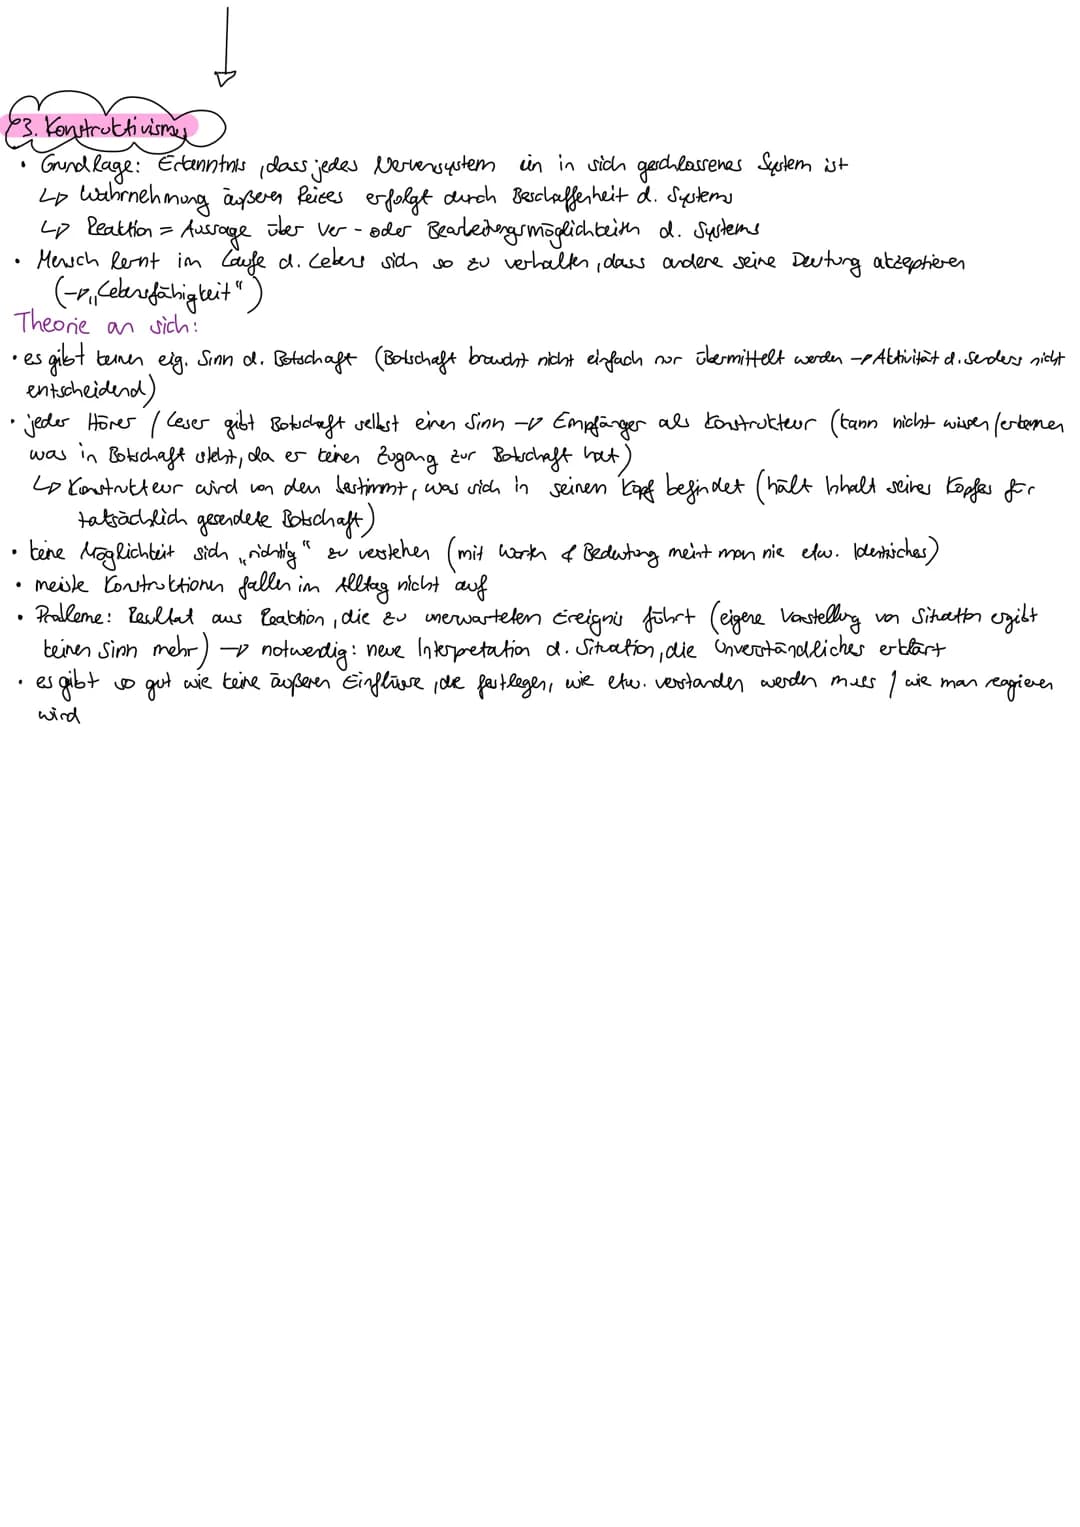 3. Konstruktivismus
• Grundlage: Erkenntnis, dass jedes Nervensystem ein in sich geschlossenes System ist
↳ Wahrnehmung äußeren Reizes erfolgt durch Beschaffenheit d. Systems
↳ Reaktion = Aussage über Ver- oder Bearbeitungsmöglichkeiten d. Systems
• Mensch lernt im Laufe d. Lebens sich so zu verhalten, dass andere seine Deutung akzeptieren
(→ „Lebensfähigkeit“)
Theorie an sich:
• es gibt keinen eig. Sinn d. Botschaft (Botschaft braucht nicht einfach nur übermittelt werden → Aktivität d. Senders nicht
entscheidend)
• jeder Hörer / Leser gibt Botschaft selbst einen Sinn → Empfänger als Konstrukteur (kann nicht wissen/erkennen
was in Botschaft steht, da er keinen Zugang zur Botschaft hat)
↳ Konstrukteur wird von dem bestimmt, was sich in seinem Kopf befindet (hält Inhalt seines Kopfes für
tatsächlich gesendete Botschaft)
• keine Möglichkeit sich „richtig“ zu verstehen (mit Worten & Bedeutung meint man nie etw. Identisches)
• meiste Konstruktionen fallen im Alltag nicht auf
• Probleme: Resultat aus Reaktion, die zu unerwartetem Ereignis führt (eigene Vorstellung von Situation ergibt
keinen Sinn mehr) → notwendig: neue Interpretation d. Situation, die Unverständliches erklärt
• es gibt so gut wie keine äußeren Einflüsse, die festlegen, wie etw. verstanden werden muss / wie man reagieren
wird